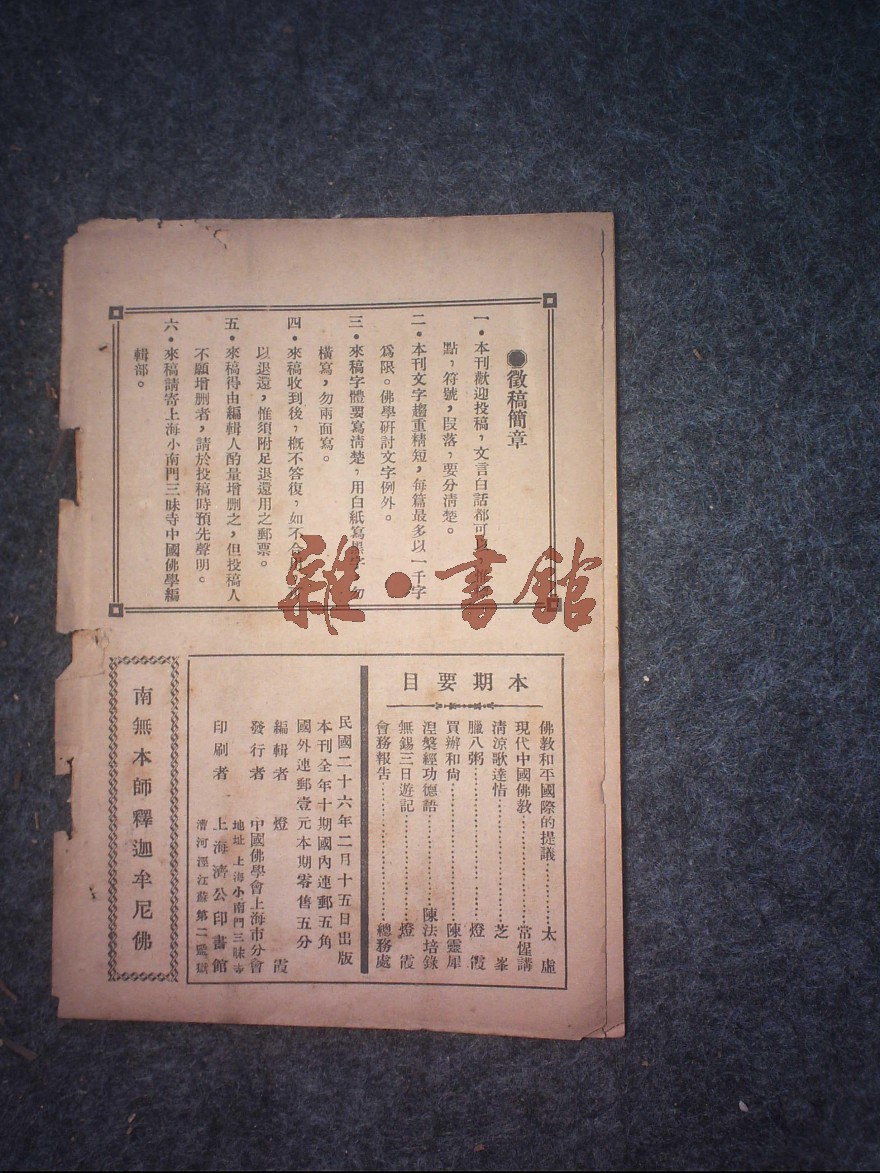 ●徵稿簡章
一．本刊歡迎投稿，文言白話都可
點，符號，段落，要分清楚。
二．本刊文字趨重精短，每篇最多以一千字
爲限。佛學研討文字例外。
三．來稿字體要寫清楚，用白紙寫墨字，勿
橫寫，勿兩面寫。
四．來稿收到後，槪不答復，如不合
以退還，惟須附足退還用之郵票。
五．來稿得由編輯人酌量增删之，但投稿人
不願增删者，請於投稿時預先聲明。
六．來稿請寄上海小南門三昧寺中國佛學編
輯部。
雜·書館
本期要目
佛敎和平國際的提議…………太虛
現代中國佛敎…………常惺講
清涼歌達恉…………芝峯
臘八粥…………燈霞
買辦和尙…………陳靈犀
湼槃經功德語…………陳法培錄
無錫三日遊記…………燈霞
會務報告…………總務處
民國二十六年二月十五日出版
本刊全年十期國內連郵五角
國外連郵壹元本期零售五分
編輯者 燈霞
發行者 中國佛學會上海市分會
地址 上海小南門三昧寺
印刷者 上海濟公印書館
漕河涇江蘇第二監獄
南無本師釋迦牟尼佛